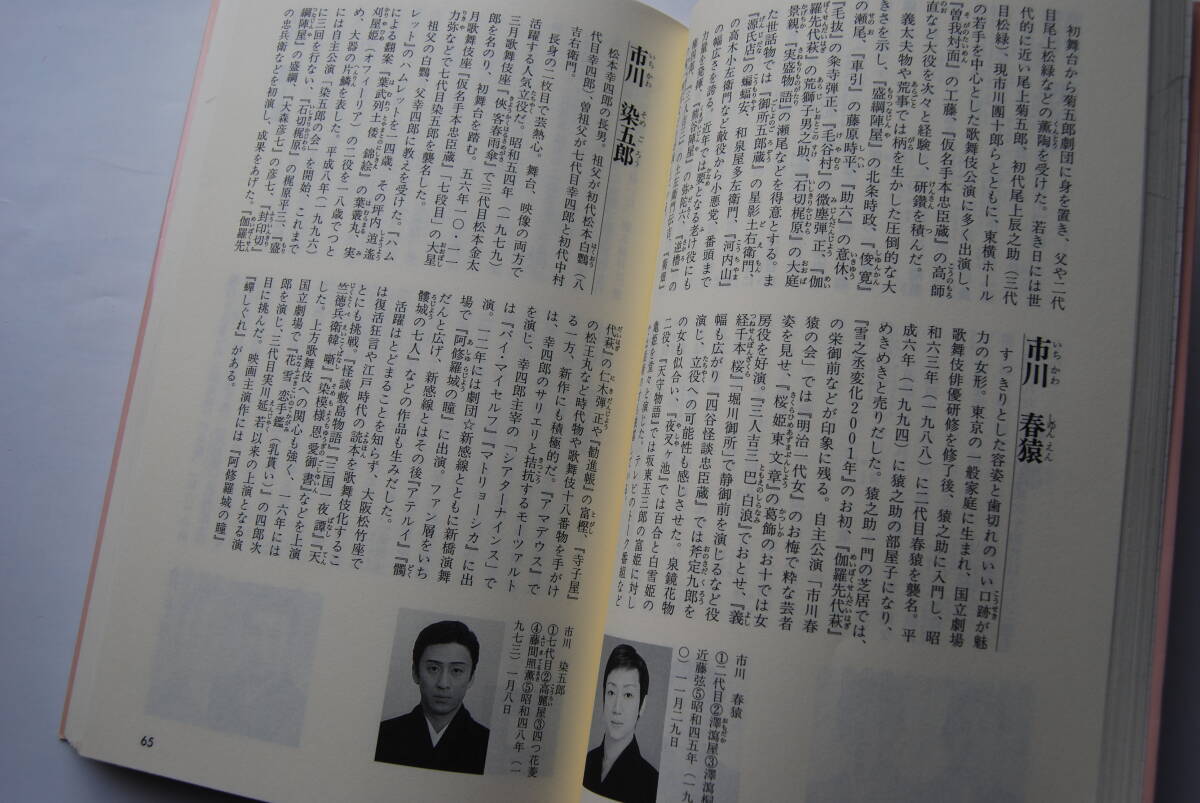 初舞台から菊五郎劇団に身を置き、父や二代
目尾上松緑などの薫陶を受けた。若き日には世
代的に近い尾上菊五郎、初代尾上辰之助（三代
目松緑）、現市川團十郎らとともに、東横ホール
の若手を中心とした歌舞伎公演に多く出演し、
『曽我対面』の工藤、『仮名手本忠臣蔵』の高師
直など大役を次々と経験し、研鑽を積んだ。
義太夫物や荒事では柄を生かした圧倒的な大
きさを示し、『盛綱陣屋』の北条時政、『俊寛』
の瀬尾、『車引』の藤原時平、『助六』の意休、
『毛抜』の粂寺弾正、『毛谷村』の微塵弾正、『伽
羅先代萩』の荒獅子男之助、『石切梶原』の大庭
景親、『実盛物語』の瀬尾などを得意とする。ま
た世話物では『御所五郎蔵』の星影土右衛門、
『源氏店』の蝙蝠安、和泉屋多左衛門、『河内山』
の高木小左衛門など敵役から小悪党、番頭まで
の幅広さを誇る。近年では要となる老け役にも
力量を発揮、『熊谷陣屋』の弥陀六、『逆櫓』の
市川 春猿
すっきりとした容姿と歯切れのいい口跡が魅
力の女形。東京の一般家庭に生まれ、国立劇場
歌舞伎俳優研修を修了後、猿之助に入門し、昭
和六三年（一九八八）に二代目春猿を襲名。平
成六年（一九九四）に猿之助の部屋子になり、
めきめきと売りだした。猿之助一門の芝居では、
『雪之丞変化２００１年』のお初、『伽羅先代萩』
の栄御前などが印象に残る。自主公演「市川春
猿の会」では『明治一代女』のお梅で粋な芸者
姿を見せ、『桜姫東文章』の葛飾のお十では女
房役を好演。『三人吉三巴白浪』でおとせ、『義
経千本桜』「堀川御所」で静御前を演じるなど役
幅も広がり、『四谷怪談忠臣蔵』では斧定九郎を
演じ、立役への可能性も感じさせた。泉鏡花物
の女も似合い、『夜叉ヶ池』では百合と白雪姫の
二役、『天守物語』では坂東玉三郎の富姫に対し
亀姫を
テレビのトーク番組など
市川 春猿
①二代目②澤瀉屋③澤瀉桐
近藤弦⑤昭和四五年（一九
〇）一一月二九日
市川 染五郎
松本幸四郎の長男。祖父が初代松本白鸚（八
代目幸四郎）、曽祖父が七代目幸四郎と初代中村
吉右衛門。
長身の二枚目で芸熱心。舞台、映像の両方で
活躍する人気立役だ。昭和五四年（一九七九）
三月歌舞伎座『俠客春雨傘』で三代目松本金太
郎を名のり、初舞台を踏む。五六年一〇・一一
月歌舞伎座『仮名手本忠臣蔵』「七段目」の大星
力弥などで七代目染五郎を襲名した。
祖父の白鸚、父幸四郎に教えを受けた。『ハム
レット』のハムレットを一四歳、その坪内逍遙
による翻案『葉武列土倭錦絵』の葉叢丸、実
刈屋姫（オフィーリア）の二役を一八歳でつと
め、大器の片鱗を表した。平成八年（一九九六）
には自主公演「染五郎の会」を開始、これまで
に三回を行ない、『石切梶原』の梶原平三、『盛
綱陣屋』の盛綱、『大森彦七』の彦七、『封印切』
の忠兵衛などを初演し、成果をあげた。『伽羅先
代萩』の仁木弾正や『勧進帳』の富樫、『寺子屋』
の松王丸など時代物や歌舞伎十八番物を手がけ
る一方、新作にも積極的だ。『アマデウス』で
は、幸四郎のサリエリと拮抗するモーツァルト
を演じ、幸四郎主宰の「シアターナインス」で
は『バイ・マイセルフ』『マトリョーシカ』に出
演。一二年には劇団☆新感線とともに新橋演舞
場で『阿修羅城の瞳』に出演。ファン層をいち
だんと広げ、新感線とはその後『アテルイ』『髑
髏城の七人』などの作品も生みだした。
活躍はとどまることを知らず、大阪松竹座で
は復活狂言や江戸時代の読本を歌舞伎化するこ
とにも挑戦。『怪談敷島物語』『三国一夜譚』『天
竺徳兵衛韓噺』『染模様恩愛御書』などを上演
した。上方歌舞伎への関心も強く、一六年には
国立劇場で『花雪恋手鑑』（乳貰い）の四郎次
郎を演じ、三代目実川延若以来の上演となる演
目に挑んだ。映画主演作には『阿修羅城の瞳』
『蟬しぐれ』がある。
市川 染五郎
①七代目②高麗屋③四つ花菱
④藤間照薫⑤昭和四八年（一
九七三）一月八日
65